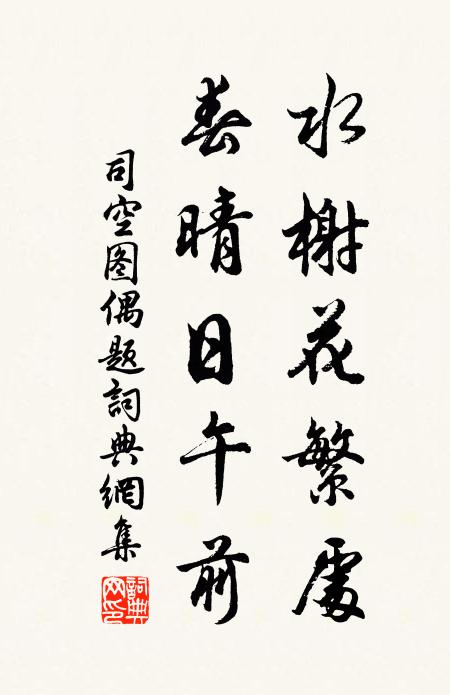 水榭花繁處
春晴日午前
司空图偶题詞典網集
詞典网印